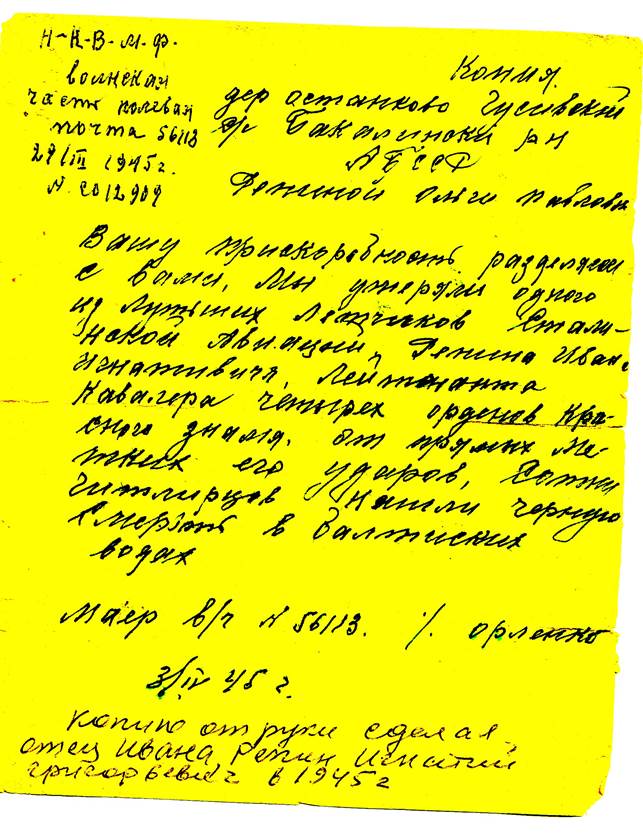 Н-К-В-М-Ф-
волнская
част полевая
почта 56113
29/III 1945г.
N 2012909
Копия.
дер останково Гусивский
Бакалински рн
АБССР
Репиной Ольги Павловн
Вашу прискорбность разделяем
с вами, Мы утеряли одного
из лутьших Летчиков Стали-
нской Авиации, Репина Ивана
Игнативича, Лейтенанта
Кавалера четырех орденов Кра-
сного знамя. от прямых ме-
тких его ударов, Сотни
гитлирцов нашли черную
Смерть в Балтиских
водах
Маер в/ч N 56113. /. орленко
3/IV 45 г.
копию от руки сделал
отец Ивана Репин Игнатий
григорьевич в 1945г